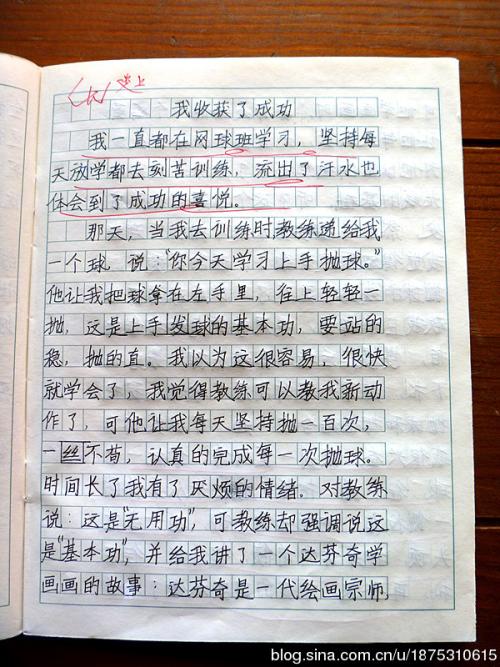 我收获了成功
我一直都在网球班学习，坚持每
天放学都去刻苦训练，流出了汗水也
体会到了成功的喜悦。
那天，当我去训练时教练递给我
一个球，说：“你今天学习上手抛球。”
他让我把球拿在左手里，往上轻轻一
抛，这是上手发球的基本功，要站的
稳，抛的直。我以为这很容易，很快
就学会了，我觉得教练可以教我新动
作了，可他让我每天坚持抛一百次，
一丝不苟，认真的完成每一次抛球。
时间长了我有了厌烦的情绪，对教练
说：这是“无用功”，可教练却强调说这
是“基本功”，并给我讲了一个达芬奇学
画画的故事：达芬奇是一代绘画宗师，
blog.sina.com.cn/u/1875310615